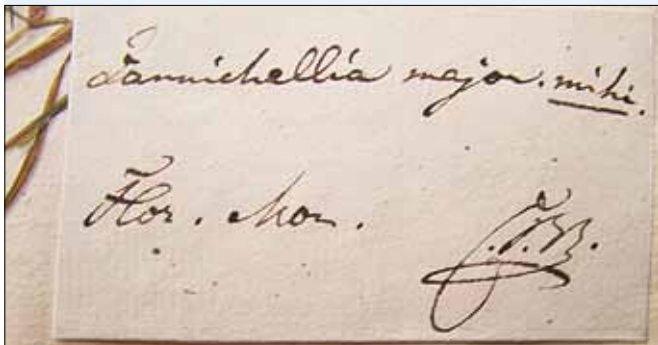 Zannichellia major. mihi.
Flor. Mon.